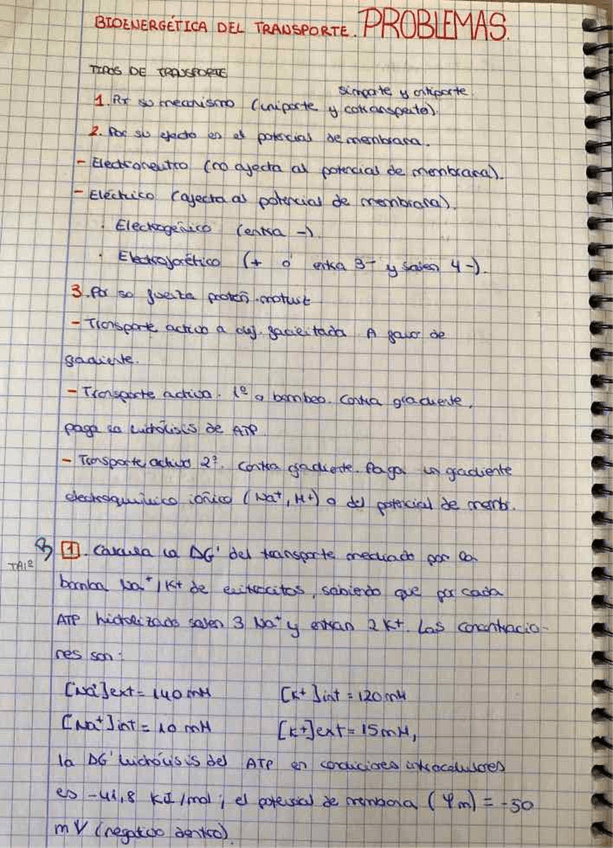 BIOENERGÉTICA DEL TRANSPORTE. PROBLEMAS.
TIPOS DE TRANSPORTE
simporte y antiporte
1. Por su mecanismo (uniporte y cotransporte).
2. Por su efecto en el potencial de membrana.
- Electroneutro (no afecta al potencial de membrana).
- Eléctrico (afecta al potencial de membrana).
· Electrogénico (entra -).
· Electroforético (+ ó entra 3- y salen 4-).
3. Por su fuerza protón-motriz
- Transporte activo a dif. facilitada. A favor de
gradiente.
- Transporte activo. 1º o bombeo. Contra gradiente,
paga la hidrólisis de ATP.
- Transporte activo 2º. Contra gradiente. Paga un gradiente
electroquímico iónico (Na+, H+) o del potencial de memb.
TAI2
1. Calcula la ΔG' del transporte mediado por la
bomba Na+/K+ de eritrocitos, sabiendo que por cada
ATP hidrolizado salen 3 Na+ y entran 2 K+. Las concentracio-
nes son:
[Na+]ext = 140 mM [K+]int = 120 mM
[Na+]int = 10 mM [K+]ext = 15 mM,
la ΔG' hidrólisis del ATP en condiciones intracelulares
es -41,8 KJ/mol; el potencial de membrana (Ψm) = -50
mV (negativo dentro).